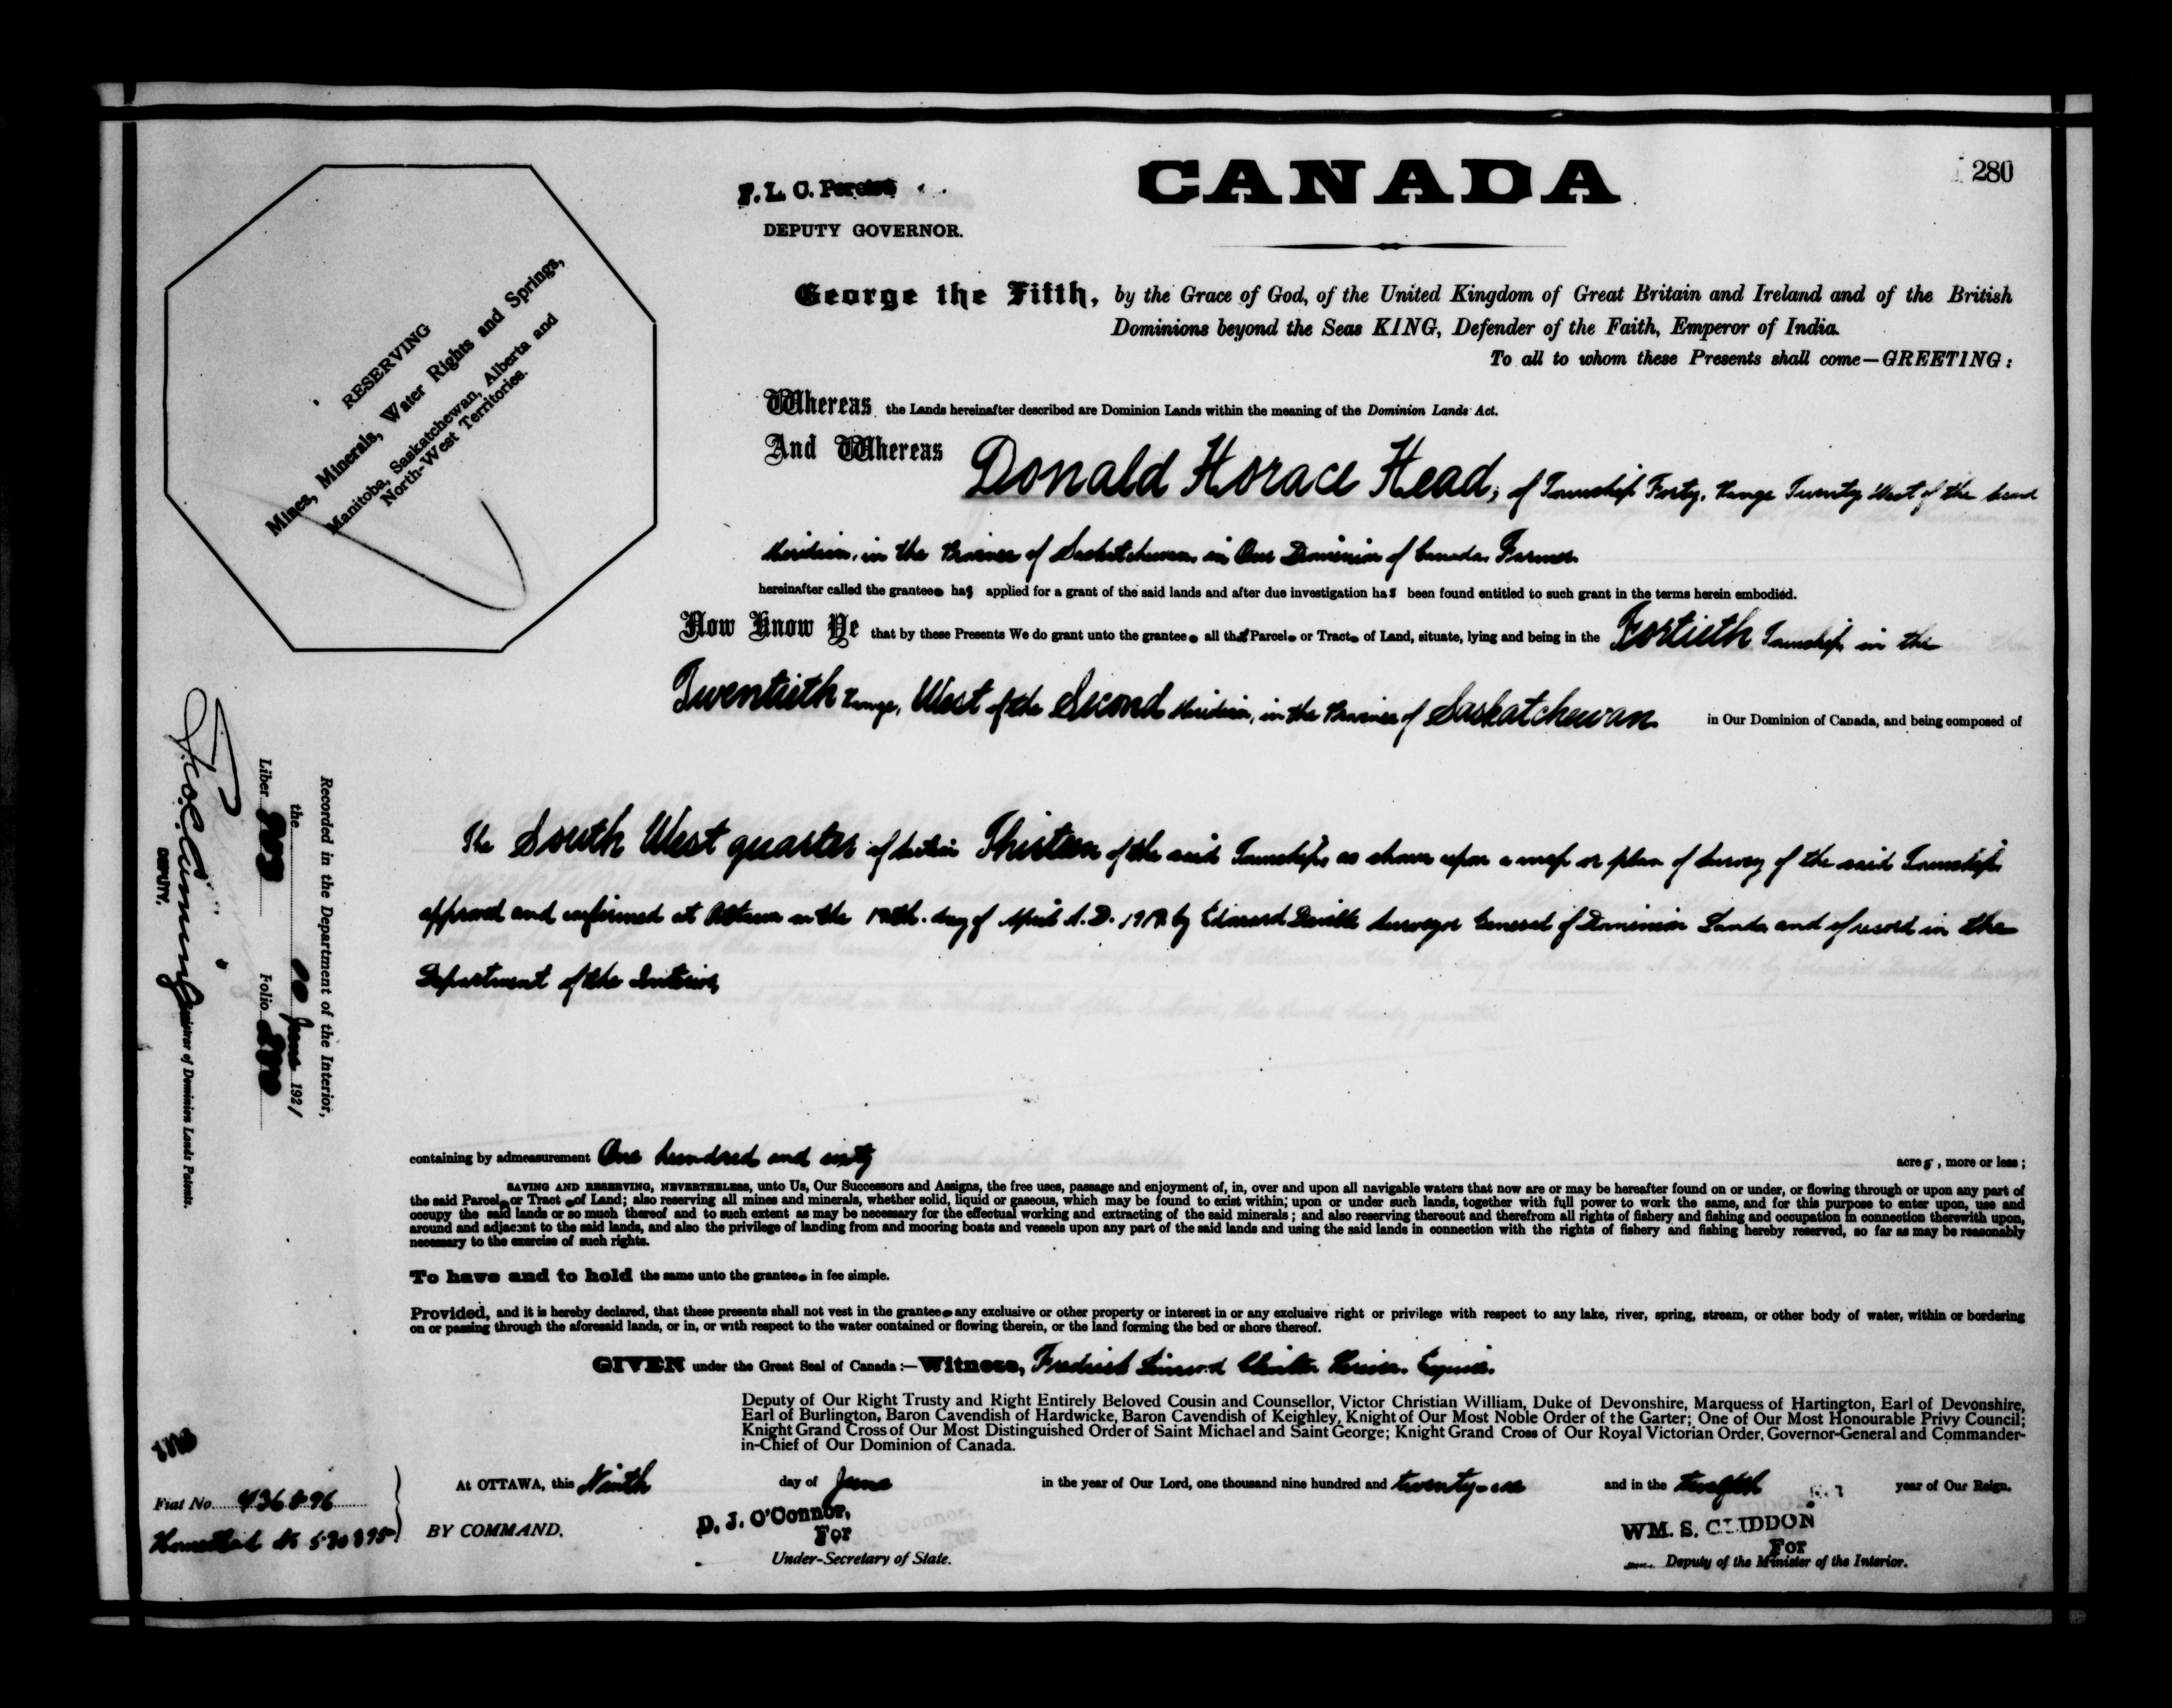 CANADA
280
F. L. C. Pereira
DEPUTY GOVERNOR.
RESERVING
Mines, Minerals, Water Rights and Springs,
Manitoba, Saskatchewan, Alberta and
North-West Territories.
George the Fifth, by the Grace of God, of the United Kingdom of Great Britain and Ireland and of the British
Dominions beyond the Seas KING, Defender of the Faith, Emperor of India.
To all to whom these Presents shall come—GREETING:
Whereas the Lands hereinafter described are Dominion Lands within the meaning of the Dominion Lands Act.
And Whereas Donald Horace Head, of Township Forty, Range Twenty West of the Second
Meridian, in the Province of Saskatchewan, in Our Dominion of Canada, Farmer
hereinafter called the grantee has applied for a grant of the said lands and after due investigation has been found entitled to such grant in the terms herein embodied.
Now Know Ye that by these Presents We do grant unto the grantee all that Parcel or Tract of Land, situate, lying and being in the Fortieth Township in the
Twentieth Range, West of the Second Meridian, in the Province of Saskatchewan in Our Dominion of Canada, and being composed of
The South West quarter of Section Thirteen of the said Township, as shown upon a map or plan of Survey of the said Township
approved and confirmed at Ottawa on the day of April A.D. by Edouard Deville Surveyor General of Dominion Lands and of record in the
Department of the Interior,
containing by admeasurement One hundred and sixty acres, more or less;
SAVING AND RESERVING, NEVERTHELESS, unto Us, Our Successors and Assigns, the free uses, passage and enjoyment of, in, over and upon all navigable waters that now are or may be hereafter found on or under, or flowing through or upon any part of
the said Parcel or Tract of Land; also reserving all mines and minerals, whether solid, liquid or gaseous, which may be found to exist within, upon or under such lands, together with full power to work the same, and for this purpose to enter upon, use and
occupy the said lands or so much thereof and to such extent as may be necessary for the effectual working and extracting of the said minerals; and also reserving thereout and therefrom all rights of fishery and fishing and occupation in connection therewith upon,
around and adjacent to the said lands, and also the privilege of landing from and mooring boats and vessels upon any part of the said lands and using the said lands in connection with the rights of fishery and fishing hereby reserved, so far as may be reasonably
necessary to the exercise of such rights.
To have and to hold the same unto the grantee in fee simple.
Provided, and it is hereby declared, that these presents shall not vest in the grantee any exclusive or other property or interest in or any exclusive right or privilege with respect to any lake, river, spring, stream, or other body of water, within or bordering
on or passing through the aforesaid lands, or in, or with respect to the water contained or flowing therein, or the land forming the bed or shore thereof.
GIVEN under the Great Seal of Canada:—Witness, Esquire.
Deputy of Our Right Trusty and Right Entirely Beloved Cousin and Counsellor, Victor Christian William, Duke of Devonshire, Marquess of Hartington, Earl of Devonshire,
Earl of Burlington, Baron Cavendish of Hardwicke, Baron Cavendish of Keighley, Knight of Our Most Noble Order of the Garter; One of Our Most Honourable Privy Council;
Knight Grand Cross of Our Most Distinguished Order of Saint Michael and Saint George; Knight Grand Cross of Our Royal Victorian Order, Governor-General and Commander-
in-Chief of Our Dominion of Canada.
At OTTAWA, this Ninth day of June in the year of Our Lord, one thousand nine hundred and twenty-one and in the twelfth year of Our Reign.
BY COMMAND,
D. J. O'Connor,
For
Under-Secretary of State.
WM. S. GLIDDON
For
Deputy of the Minister of the Interior.
Recorded in the Department of the Interior,
the June 1921
Liber Folio 280
DEPUTY, Registrar of Dominion Lands Patents.
Fiat No.
Homestead